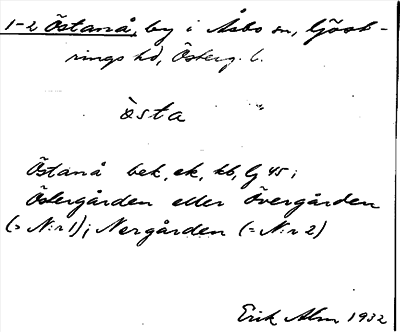 1-2 Östanå, by i Åsbo sn, Göst-
rings hd, Österg. l.
östa
Östanå bek, ek, kb, G 45;
Östergården eller Övergården
(= N:r 1); Nergården (= N:r 2)
Erik Alm 1932